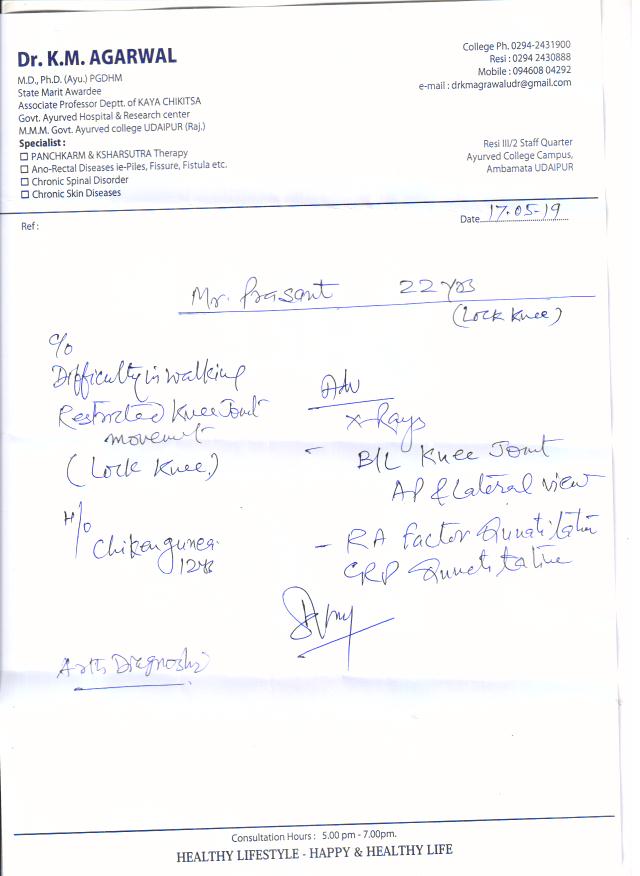 Dr. K.M. AGARWAL
M.D., Ph.D. (Ayu.) PGDHM
State Marit Awardee
Associate Professor Deptt. of KAYA CHIKITSA
Govt. Ayurved Hospital & Research center
M.M.M. Govt. Ayurved college UDAIPUR (Raj.)
Specialist :
PANCHKARM & KSHARSUTRA Therapy
Ano-Rectal Diseases ie-Piles, Fissure, Fistula etc.
Chronic Spinal Disorder
Chronic Skin Diseases
College Ph. 0294-2431900
Resi : 0294 2430888
Mobile : 094608 04292
e-mail : drkmagrawaludr@gmail.com
Resi III/2 Staff Quarter
Ayurved College Campus,
Ambamata UDAIPUR
Ref :
Date 17.05-19
Mr. Prasant 22 yrs
(Lock Knee)
C/o
Difficulty in walking
Restricted Knee Joint
movement
(Lock Knee)
H/o
Chikangunea
Adv
X-Rays
- B/L Knee Joint
AP & Lateral view
- RA Factor Qunatitative
CRP Qunatitative
Diagnosis
Consultation Hours : 5.00 pm - 7.00pm.
HEALTHY LIFESTYLE - HAPPY & HEALTHY LIFE